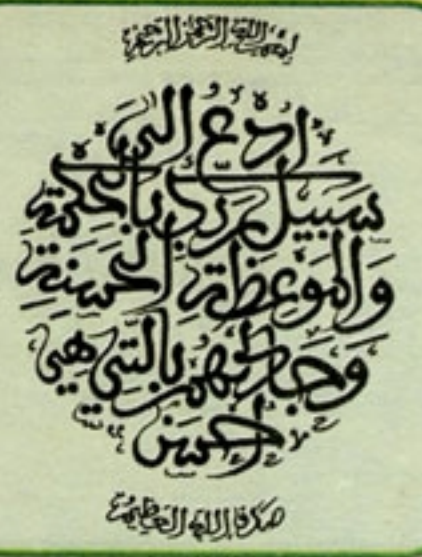 بسم الله الرحمن الرحيم
ادع إلى
سبيل ربك بالحكمة
والموعظة الحسنة
وجادلهم بالتي هي
أحسن
صدق الله العظيم